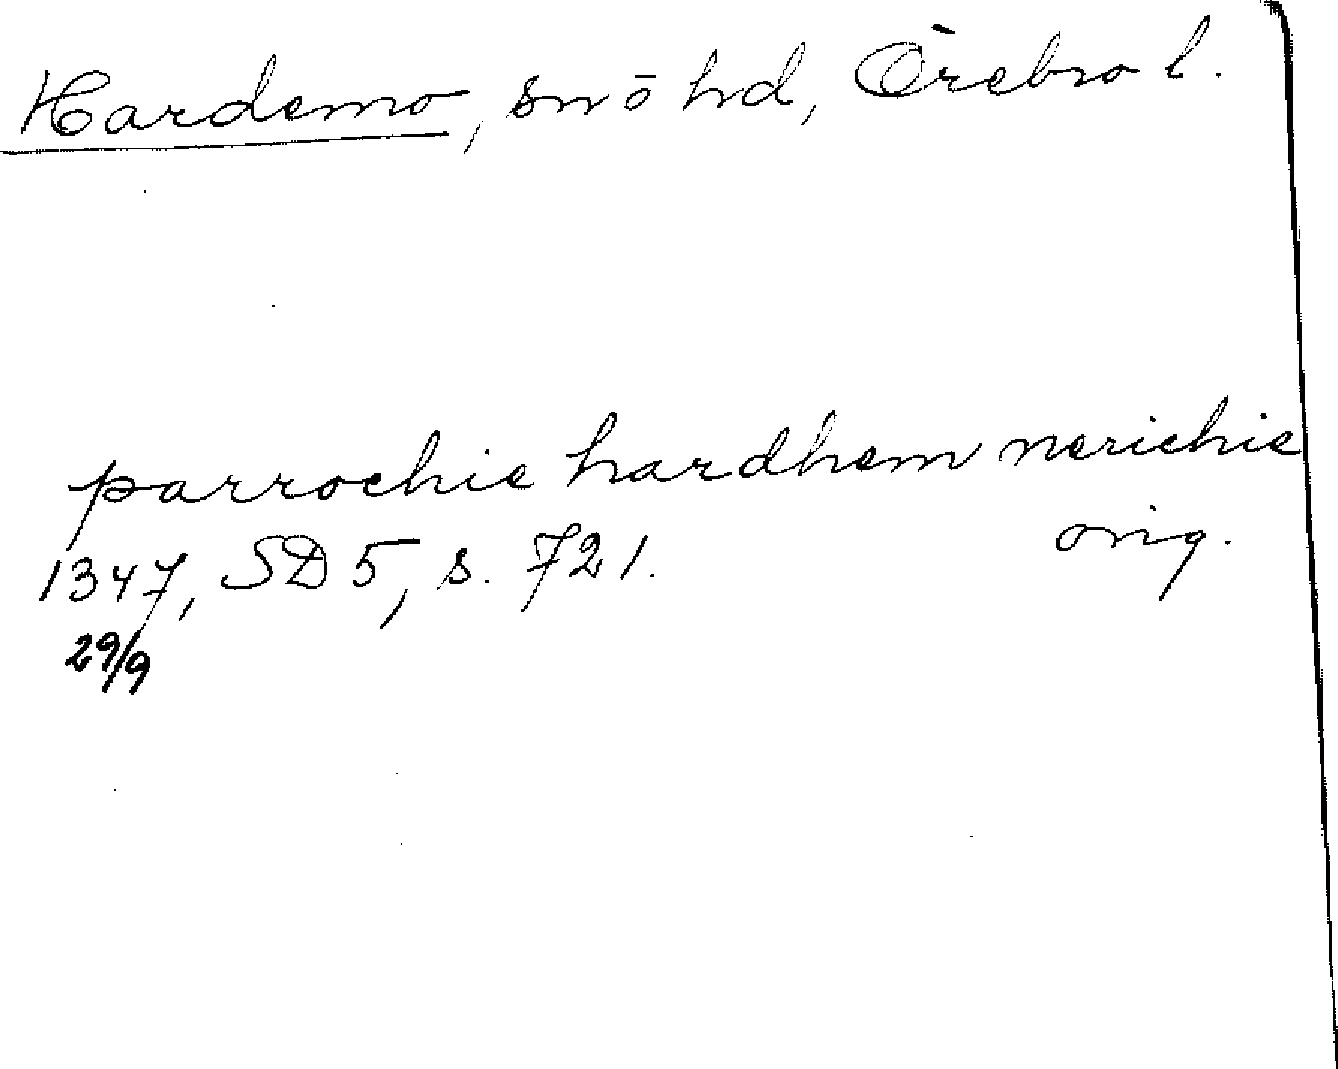 Hardemo, sn o hd, Örebro l.
parrochie hardhem nerichie
1347, SD 5, s. 721. orig.
29/9